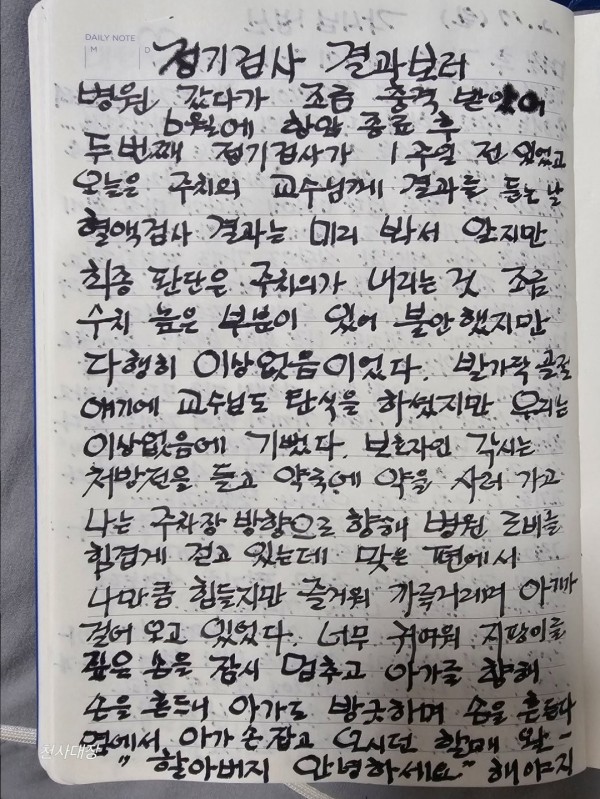 DAILY NOTE
M D
정기검사 결과보러
병원 갔다가 조금 충격 받았어
6월에 항암 종료 후
두번째 정기검사가 1주일 전 있었고
오늘은 주치의 교수님께 결과를 듣는 날
혈액검사 결과는 미리 봐서 알지만
최종 판단은 주치의가 내리는 것 조금
수치 높은 부분이 있어 불안했지만
다행히 이상없음이었다. 발가락 골절
얘기에 교수님도 탄식을 하셨지만 우리는
이상없음에 기뻤다. 보호자인 각시는
처방전을 들고 약국에 약을 사러 가고
나는 주차장 방향으로 향해 병원 로비를
힘겹게 걷고 있는데 맞은 편에서
나만큼 힘들지만 즐거워 까륵거리며 아가가
걸어 오고 있었다. 너무 귀여워 지팡이를
짚은 손을 잠시 멈추고 아가를 향해
손을 흔드니 아가도 방긋하며 손을 흔든다
옆에서 아가 손잡고 오시던 할매 왈-
"할아버지 안녕하세요" 해야지
천사대장